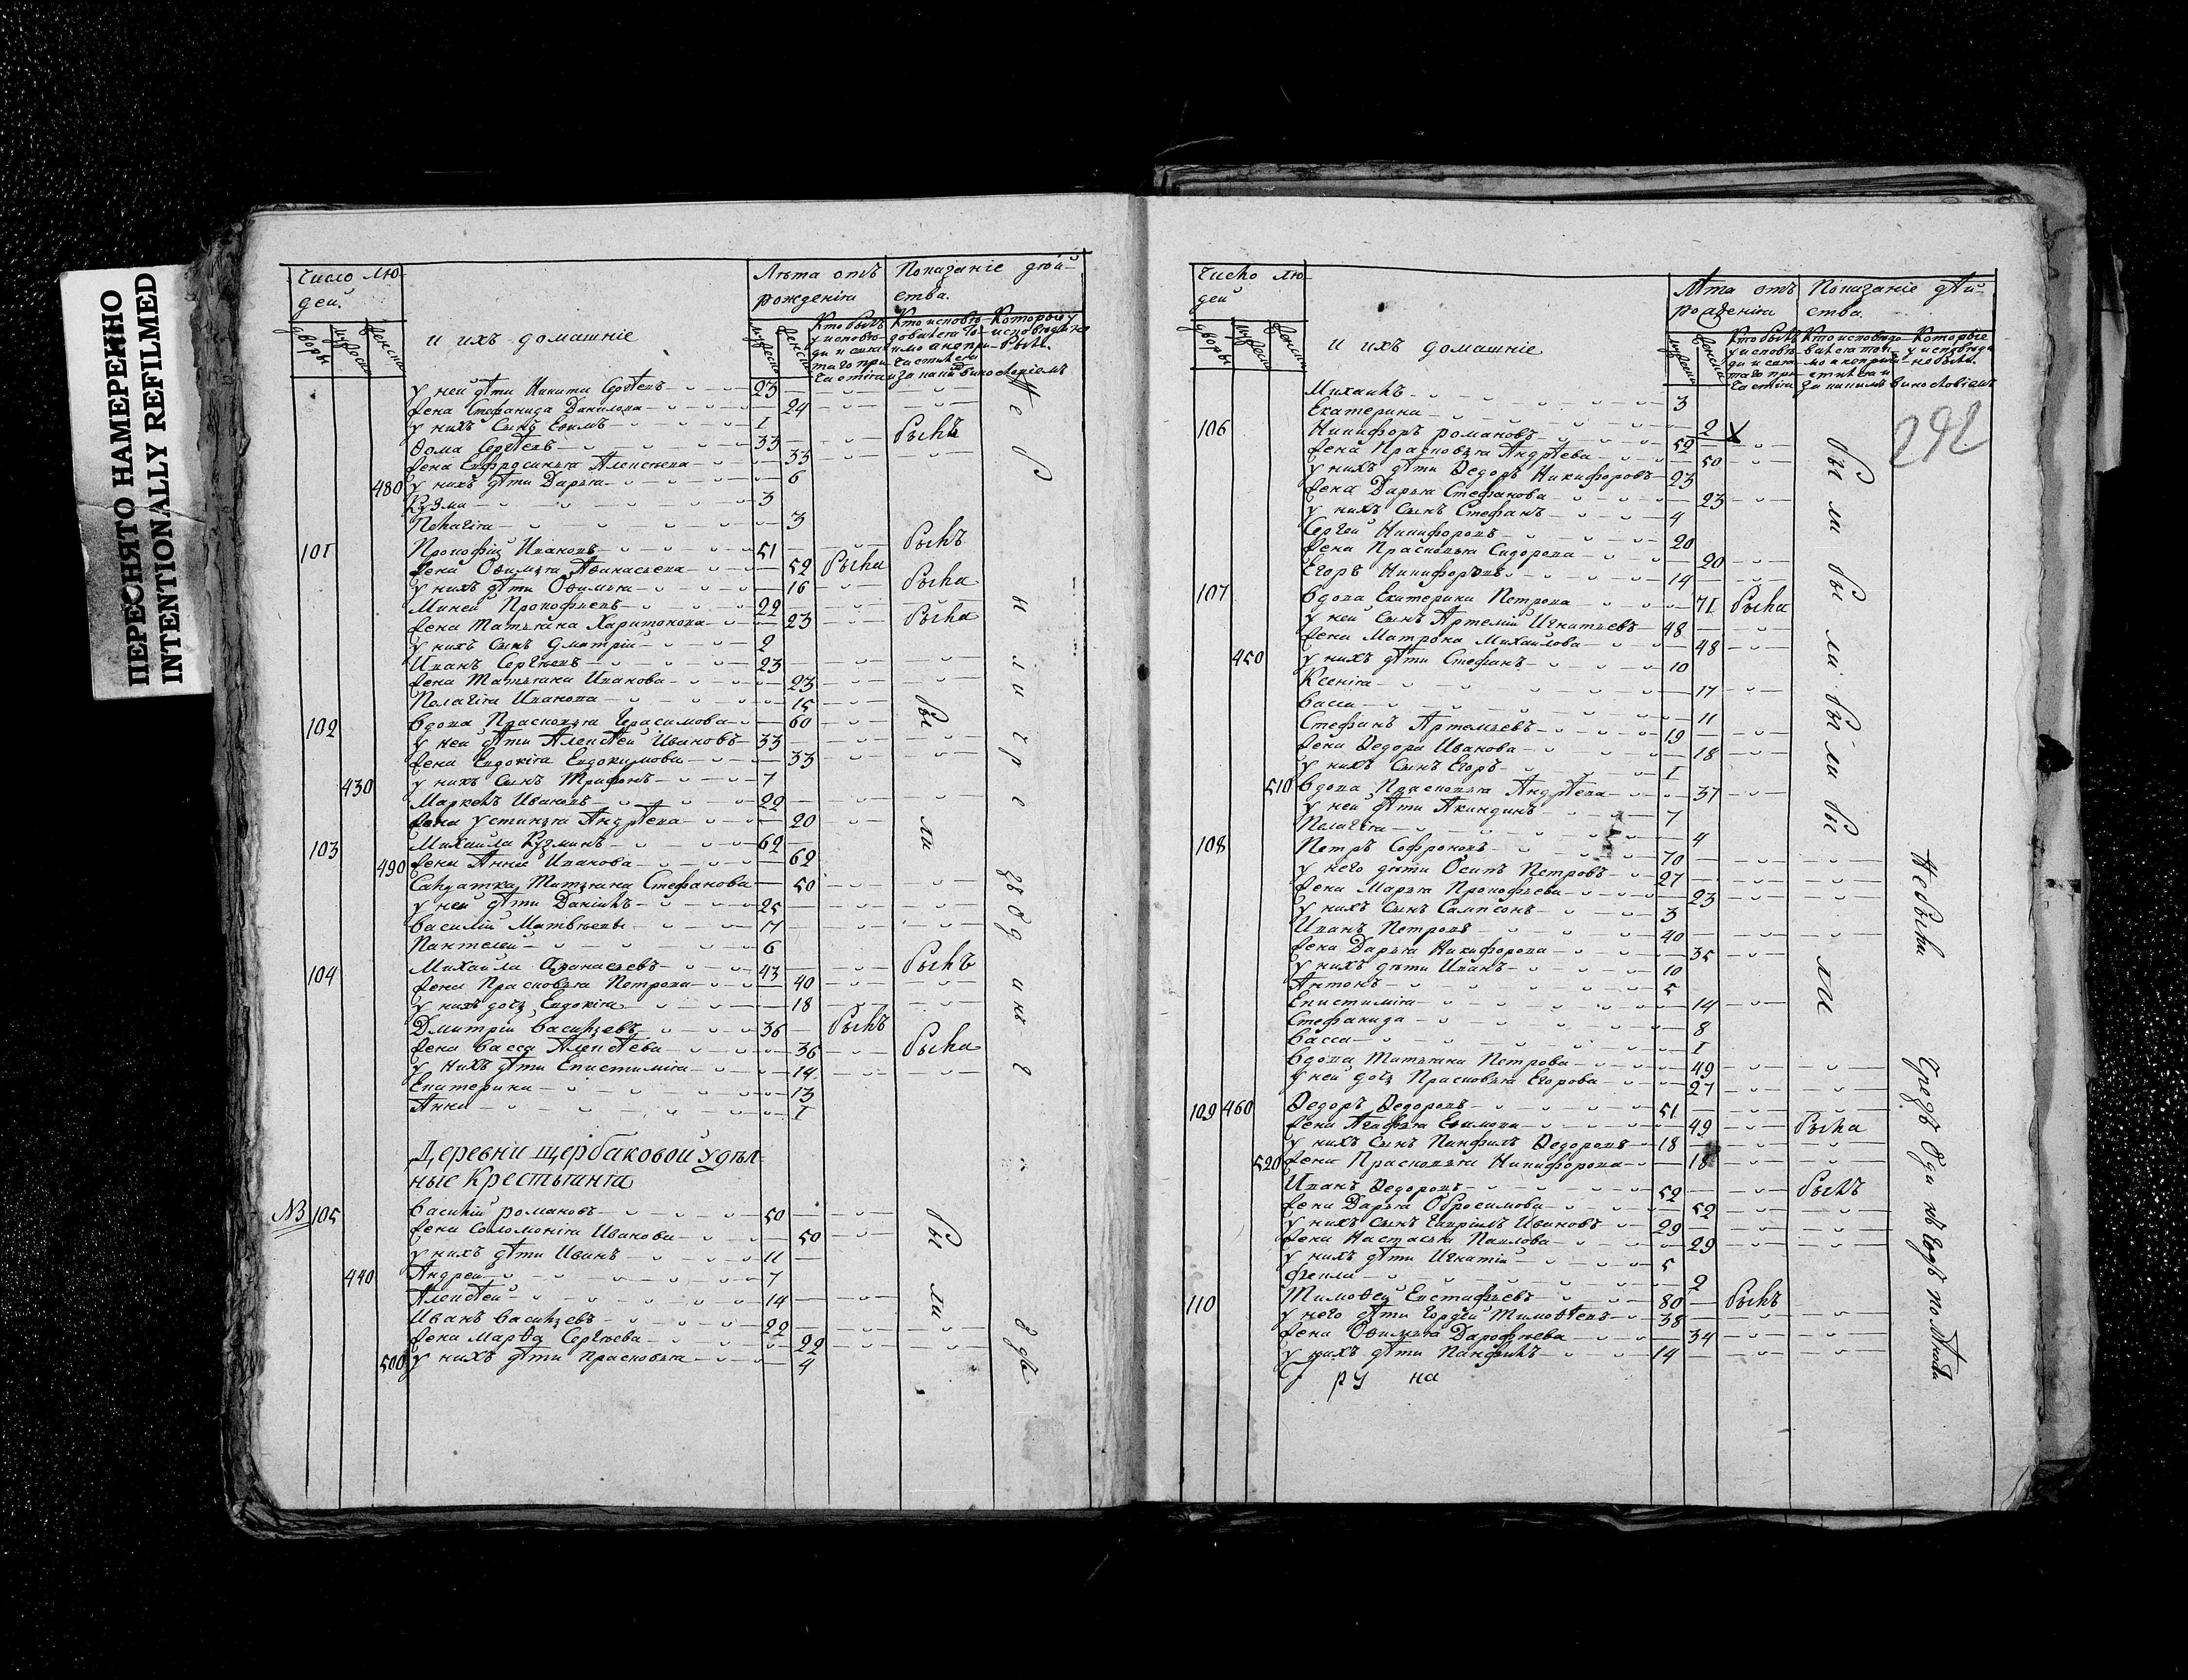 ПЕРЕСНЯТО НАМЕРЕННО
INTENTIONALLY REFILMED
Число лю-
дей.
дворы
мужеска
женска
и ихъ домашніе
Лѣта отъ рожденія
Показаніе дѣй-
ства.
у ней дѣти Никита Сергѣевъ 23
жена Стефанида Данилова 24
у нихъ сынъ Евимъ 1
Ѳома Сергѣевъ 33 былъ
жена Евфросинья Алексѣева 33
480 у нихъ дѣти Дарья 6
Кузма 3
Пелагія 3
101 Прокофій Ивановъ 51 былъ
жена Оѳимья Аѳанасьева 52 была
у нихъ дѣти Оѳимья 16 была
Миней Прокофьевъ 22
жена Татьяна Харитонова 23 была
у нихъ сынъ Дмитрій 2
Иванъ Сергѣевъ 23
жена Татьяна Иванова 23
Пелагія Иванова 15
102 вдова Прасковья Герасимова 60
у ней дѣти Алексѣй Ивановъ 33
жена Евдокія Евдокимова 33
430 у нихъ сынъ Трифонъ 7
Маркелъ Ивановъ 22
жена Устинья Андрѣева 20
103 Михайла Кузминъ 62
490 жена Анна Иванова 62
Салдатка Татьяна Стефанова 50
у ней дѣти Данилъ 25
Василій Матвѣевъ 17
Пантелей 6
104 Михайла Аѳанасьевъ 43 былъ
жена Прасковья Петрова 40
у нихъ дочь Евдокія 18
Дмитрій Васильевъ 36 былъ
жена Васса Алексѣева 36 была
у нихъ дѣти Епистимія 14
Екатерина 13
Анна 1
Деревни Щербаковой удѣл-
ные крестьяня
№3 105 Василій Романовъ 50
жена Соломонія Иванова 50
у нихъ дѣти Иванъ 11
440 Андрей 7
Алексѣй 14
Иванъ Васильевъ 22
жена Марѳа Сергѣева 22
500 у нихъ дѣти Прасковья 4
Число лю-
дей
дворы
мужеска
женска
и ихъ домашніе
Лѣта отъ рожденія
Показаніе дѣй-
ства.
292
Михаилъ 3
Екатерина 2
106 Никифоръ Романовъ 52
жена Прасковья Андрѣева 50
у нихъ дѣти Ѳедоръ Никифоровъ 23
жена Дарья Стефанова 23
у нихъ сынъ Стефанъ 4
Сергей Никифоровъ 20
жена Прасковья Сидорова 20
Егоръ Никифоровъ 14
107 вдова Екатерина Петрова 71 была
у ней сынъ Артемій Игнатьевъ 48
жена Матрона Михайлова 48
450 у нихъ дѣти Стефанъ 10
Ксенія 17
Васса 11
Стефанъ Артемьевъ 19
жена Ѳедора Иванова 18
у нихъ сынъ Егоръ 1
510 вдова Прасковья Андрѣева 37
у ней дѣти Акиндинъ 7
Пелагія 4
108 Петръ Софроновъ 70
у него дѣти Осипъ Петровъ 27
жена Марья Прокофьева 23
у нихъ сынъ Сампсонъ 3
Иванъ Петровъ 40
жена Дарья Никифорова 35
у нихъ дѣти Иванъ 10
Антонъ 5
Епистимія 14
Стефанида 8
Васса 1
вдова Татьяна Петрова 49
у ней дочь Прасковья Егорова 27
109 460 Ѳедоръ Ѳедоровъ 51
жена Агафья Еѳимова 49 была
у нихъ сынъ Панфилъ Ѳедоровъ 18
520 жена Прасковья Никифорова 18
Иванъ Ѳедоровъ 52 былъ
жена Дарья Обросимова 52
у нихъ сынъ Гаврилъ Ивановъ 29
жена Настасья Павлова 29
у нихъ дѣти Игнатій 5
Ѳекла 2
110 Тимоѳей Евстафьевъ 80 былъ
у него дѣти Гордѣй Тимоѳеевъ 38
жена Оѳимья Дорофѣева 34
у нихъ дѣти Панфилъ 14
ру на